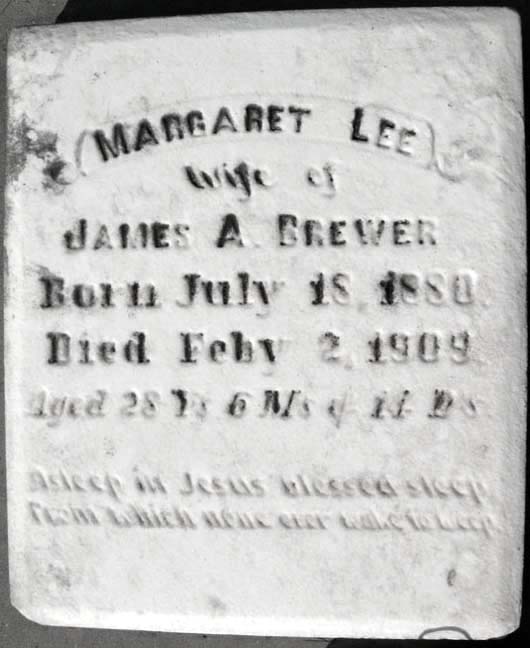 MARGARET LEE
Wife of
JAMES A. BREWER
Born July 18, 1880.
Died Feby 2, 1909.
Aged 28 Ys 6 Ms & 14 Ds.
Asleep in Jesus blessed sleep
From which none ever wake to weep.